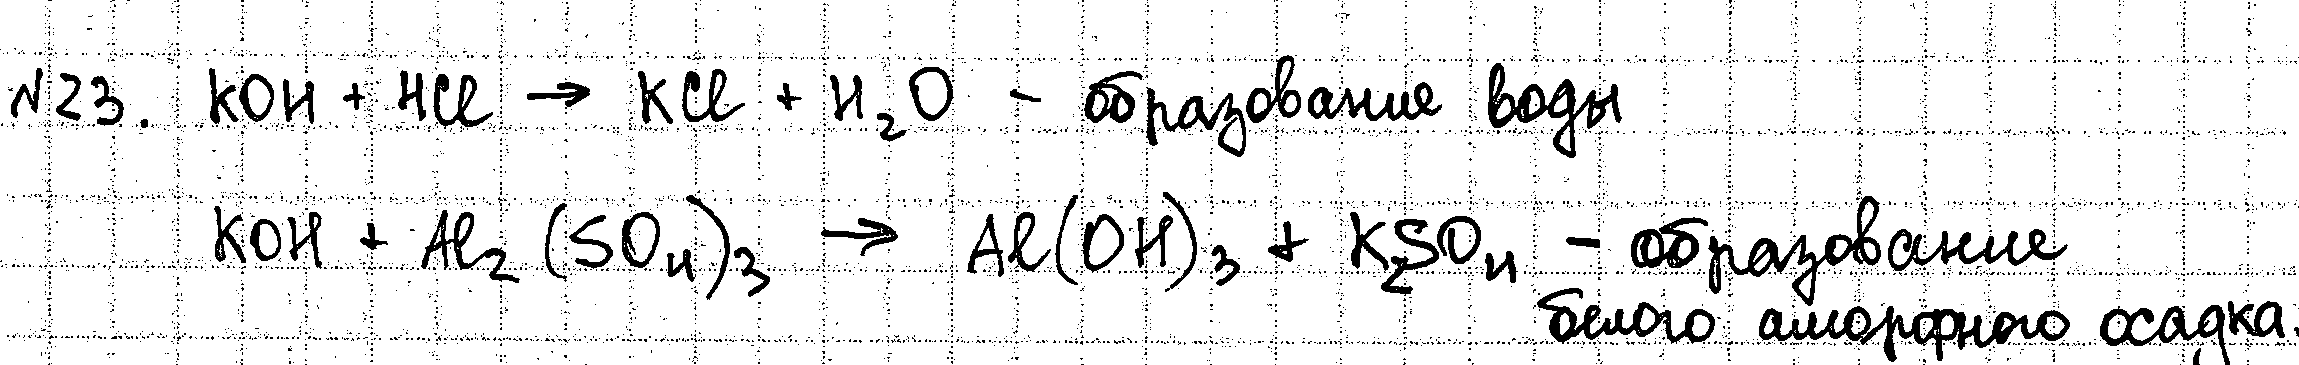 №23. KOH + HCl → KCl + H₂O - образование воды
KOH + Al₂(SO₄)₃ → Al(OH)₃ + K₂SO₄ - образование
белого аморфного осадка.